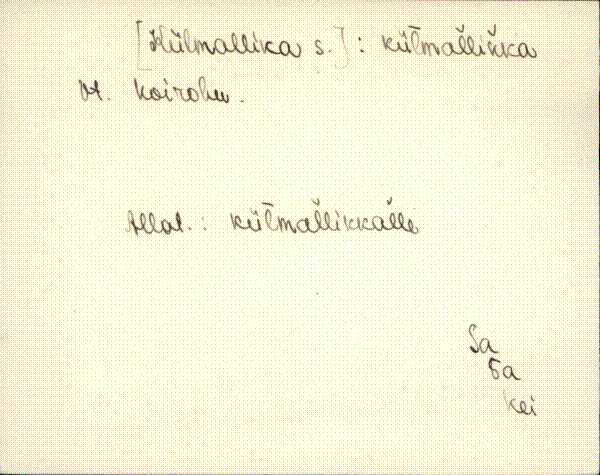 [Külmallika s.] : kül̄mal̆lik̆ka
Vt. Koirohu.
Allat. : kül̄mal̆likkal̆le
Sa
Ba
kei